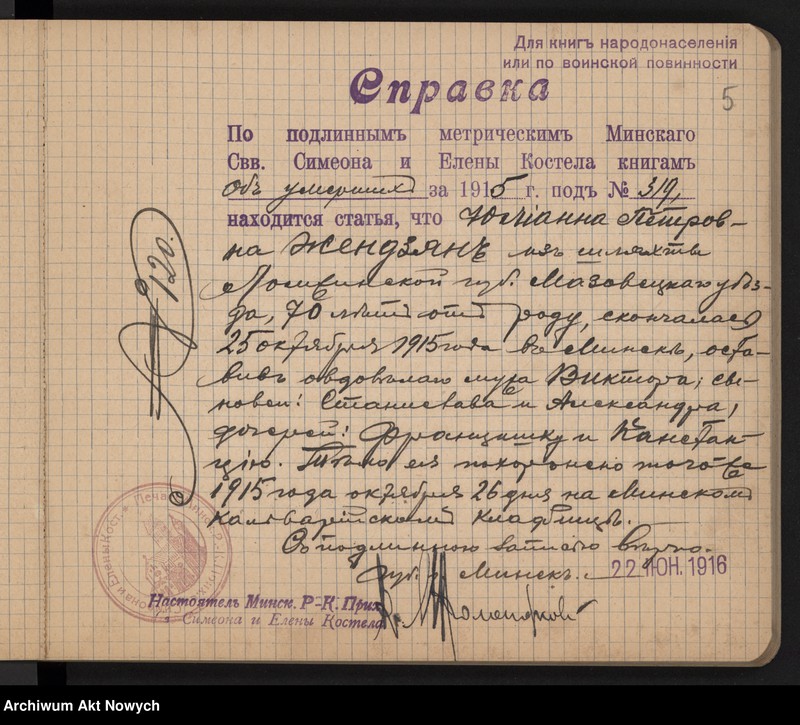 Для книгъ народонаселенія
или по воинской повинности
5
Справка
По подлиннымъ метрическимъ Минскаго
Свв. Симеона и Елены Костела книгамъ
объ умершихъ за 1915 г. подъ № 319,
находится статья, что Юліанна Петров-
на Жендзянъ изъ шляхты
Ломжинской губ. Мазовецкаго уѣз-
да, 70 лѣтъ отъ роду, скончалась
25 октября 1915 года въ Минскѣ, оста-
вивъ овдовѣлаго мужа Виктора; сы-
новей: Станислава и Александра;
дочерей: Францишку и Констан-
цію. Тѣло ея похоронено того же
1915 года октября 26 дня на Минскомъ
Кальварійскомъ кладбищѣ.
Съ подлинною записью вѣрно.
Губ. г. Минскъ. 22 ІЮН. 1916
Настоятель Минск. Р-К. Прих.
Симеона и Елены Костела
№ 120.
Archiwum Akt Nowych